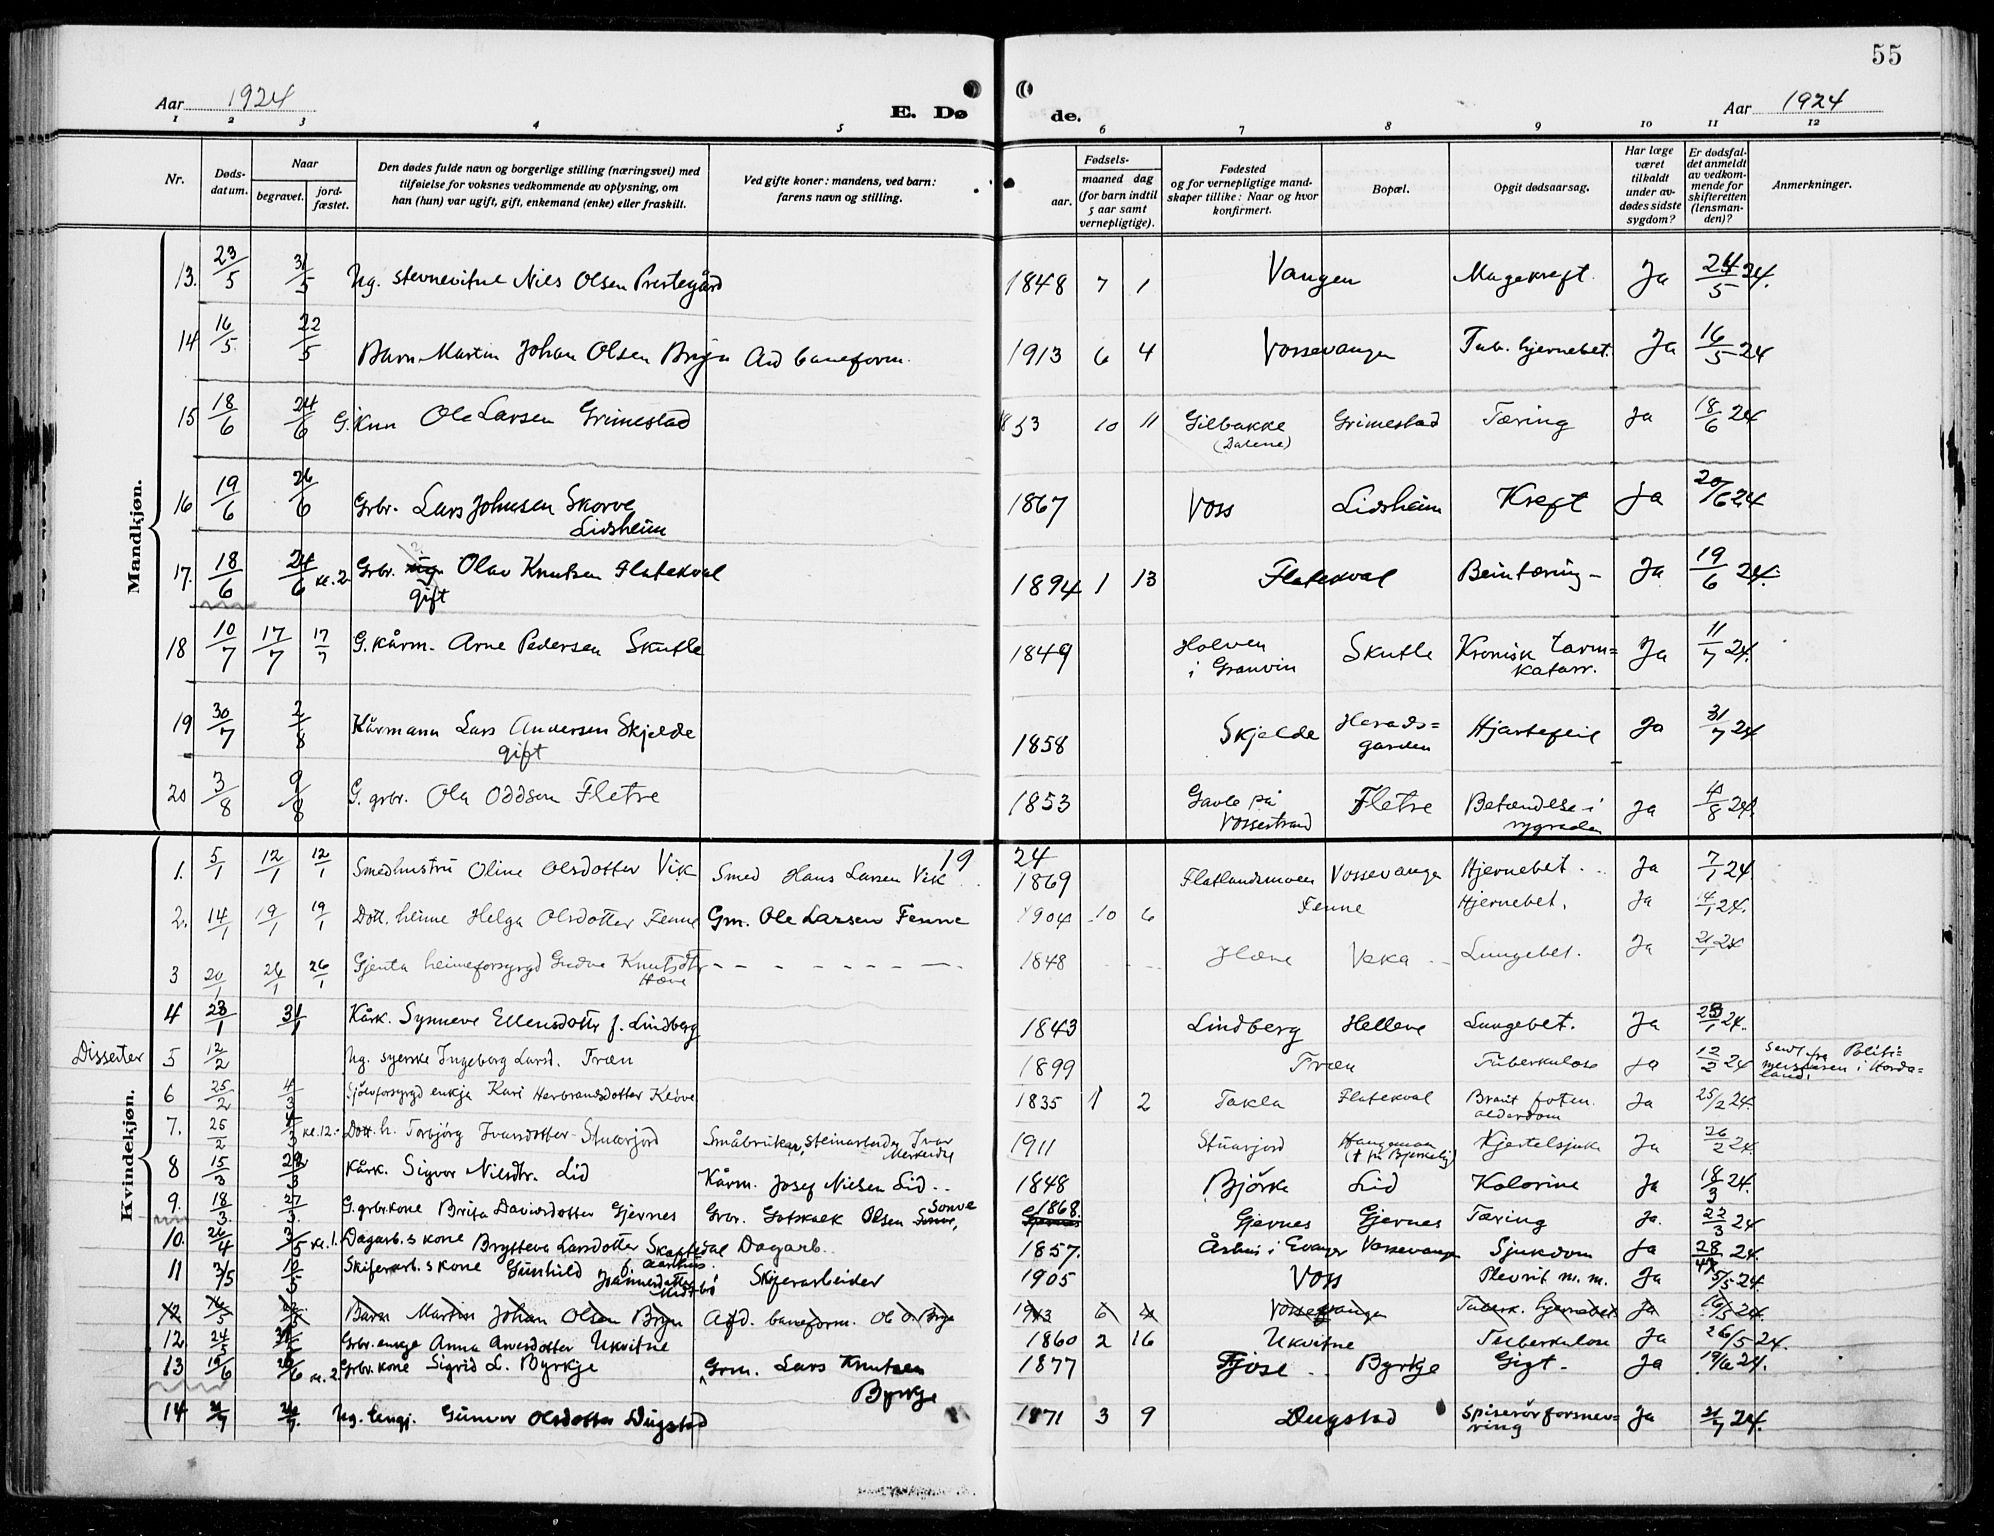 55
Aar 1924
E. Døde.
Aar 1924
1 2 3 4 5 6 7 8 9 10 11 12
Nr.
Døds-
datum.
Naar
begravet.
jord-
fæstet.
Den dødes fulde navn og borgerlige stilling (næringsvei) med
tilføielse for voksnes vedkommende av oplysning, om
han (hun) var ugift, gift, enkemand (enke) eller fraskilt.
Ved gifte koner: mandens, ved barn:
farens navn og stilling.
Fødsels-
aar.
maaned dag
(for barn indtil
5 aar samt
vernepligtige).
Fødested
og for vernepligtige mand-
skaper tillike: Naar og hvor
konfirmert.
Bopæl.
Opgit dødsaarsag.
Har læge
været
tilkaldt
under av-
dødes sidste
sygdom?
Er dødsfal-
det anmeldt
av vedkom-
mende for
skifteretten
(lensman-
den)?
Anmerkninger.
Mandkjøn.
13. 23/5 31/5 Ug. stevnevitne Nils Olsen Prestegård 1848 7 1 Vangen Magekreft Ja 24/5 24.
14 16/5 22/5 Barn Martin Johan Olsen Bryn Avd baneform. 1913 6 4 Vossevangen Tub. hjernebet. Ja 16/5 24
15 18/6 24/6 G. Ole Larsen Grimestad 1853 10 11 Gilbakke Grimestad Tæring Ja 18/6 24
(Dalene)
16 19/6 26/6 Grbr. Lars Johnsen Skorve 1867 Voss Lidsheim Kreft Ja 20/6 24
Lidsheim
17. 18/6 24/6 kl. 2 Grbr. ug. Olav Knutsen Flatekval 1894 1 13 Flatekval Beintæring Ja 19/6 24.
gift
18 10/7 17/7 17/7 G. kårm. Arne Pedersen Skutle 1849 Holven Skutle Kronisk tarm= Ja 11/7 24.
i Granvin katarr.
19 30/7 2/8 Kårmann Lars Andersen Skjelde 1858 Skjelde Herads= Hjartefeil Ja 31/7 24
gift garden
20 3/8 9/8 G. grbr. Ola Oddson Fletre 1853 Gavle på Fletre Betændelse i Ja 4/8 24.
Vossestrand rygraden
Kvindekjøn.
1924
1. 5/1 12/1 12/1 Smedhustru Oline Olsdotter Vik Smed Hans Larsen Vik 1869 Flatlandsmoen Vossevangen Hjernebet. Ja 7/1 24.
2. 14/1 19/1 19/1 Dott. heime Helga Olsdotter Fenne Gm. Ole Larsen Fenne 1904 10 6 Fenne Hjernebet. Ja 14/1 24.
3 20/1 26/1 26/1 Gjenta heimeforsyrgd Knutsdtr 1848 Hæve Lungebet. Ja 21/1 24
Hæve
4 23/1 31/1 Kårk. Synneve Ellensdotter f. Lindberg 1843 Lindberg Helleve Lungebet. Ja 25/1 24.
Dissenter 5 12/2 Ug. syerske Ingeborg Larsd. Fræn 1899 Fræn Tuberkulose Ja 12/2 24 Sendt fra Politi=
meisteren i Horda=
land.
6 25/2 4/3 Sjölvforsyrgd enkja Kari Herbrandsdotter Klöve 1835 1 2 Takla Flatekval Brand i foten. Ja 25/2 24.
alderdom
7. 25/2 4/3 kl. 12. Dott. h. Torbjörg Ivarsdotter Stuarjord Småbruker, steinarbeider Ivar 1911 Stuarjord Kjertelsjuk Ja 26/2 24.
8 15/3 22/3 Kårk. Sigvor Nilsdtr. Lid Kårm. Josef Nielsen Lid 1848 Björke Lid Kolorine Ja 18/3 24.
9. 18/3. 27/3. G. grbr.kone Brita Davidsdotter Gjernes Grbr. Gotskalk Olsen Sonve 1868. Gjernes Gjernes Tæring Ja. 22/3 24
10. 26/4 3/5 kl. 1. Dagarb.s kone Brytteva Larsdotter Skaftedal Dagarb. 1857. Århus i Evanger Vossevangen Sjukdom Ja 28/4 24.
11 3/5 10/5 Skiferarb.s kone Gunhild Skiferarbeider 1905 Voss Plevrit m. m. Ja 5/5 24.
12 16/5 22/5 Barn Martin Johan Olsen Bryn Avd. baneform. Ol O. Bryn 1913 6 4 Vossevangen Tuberk. hjernebet. Ja 16/5 24.
12. 24/5 31/5 Grbr. enkje Anna Arnesdotter Ukvitne 1860 2 16 Ukvitne Tuberkulose Ja 26/5 24.
13 19/6 26/6 kl. 2 Grbr. kone Sigrid L. Byrkje Grm. Lars Knutsen 1877 Fjose Byrkje Gigt Ja 19/6 24.
Byrkje
14 21/7 26/7. Ug. Gunvor Olsdotter Dugstad 1871 3 9 Dugstad Spiserörforsnev= Ja 21/7 24.
ring